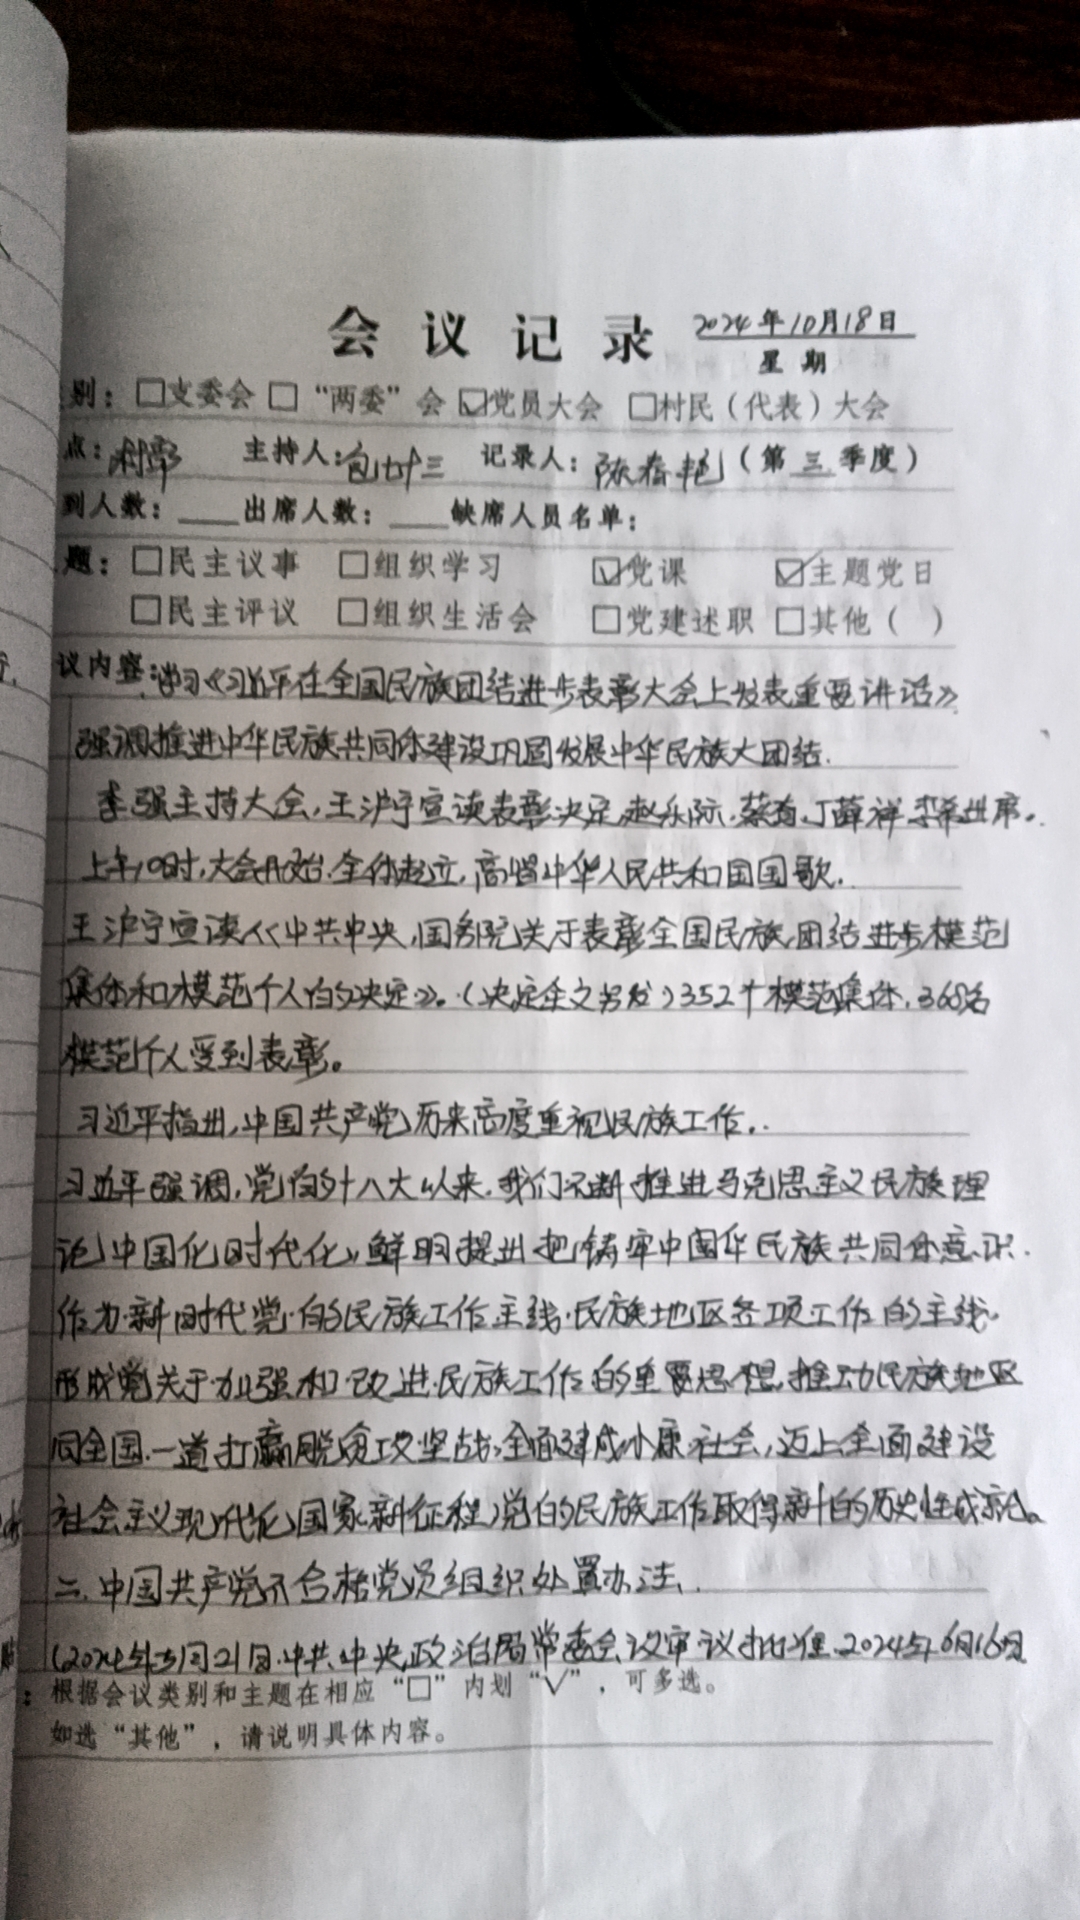 会议记录 2024年10月18日
星期
别：□支委会 □“两委”会 ☑党员大会 □村民（代表）大会
点：村部 主持人：包七十三 记录人：陈春艳（第三季度）
到人数：____出席人数：____缺席人员名单：
题：□民主议事 □组织学习 ☑党课 ☑主题党日
□民主评议 □组织生活会 □党建述职 □其他（ ）
议内容：学习《习近平在全国民族团结进步表彰大会上发表重要讲话》
强调推进中华民族共同体建设巩固发展中华民族大团结.
李强主持大会,王沪宁宣读表彰决定,赵乐际,蔡奇,丁薛祥李希出席。
上午10时,大会开始.全体起立,高唱中华人民共和国国歌.
王沪宁宣读《中共中央,国务院关于表彰全国民族团结进步模范
集体和模范个人的决定》。（决定全文另发）352个模范集体,368名
模范个人受到表彰。
习近平指出,中国共产党历来高度重视民族工作.
习近平强调,党的十八大以来,我们不断推进马克思主义民族理
论中国化时代化,鲜明提出把铸牢中国华民族共同体意识.
作为新时代党的民族工作主线.民族地区各项工作的主线.
形成党关于加强和改进民族工作的重要思想,推动民族地区
同全国一道打赢脱贫攻坚战,全面建成小康社会,迈上全面建设
社会主义现代化国家新征程,党的民族工作取得新的历史性成就。
二.中国共产党不合格党员组织处置办法.
(2024年5月21日中共中央政治局常委会议审议批准.2024年6月16日
：根据会议类别和主题在相应“□”内划“√”，可多选。
如选“其他”，请说明具体内容。